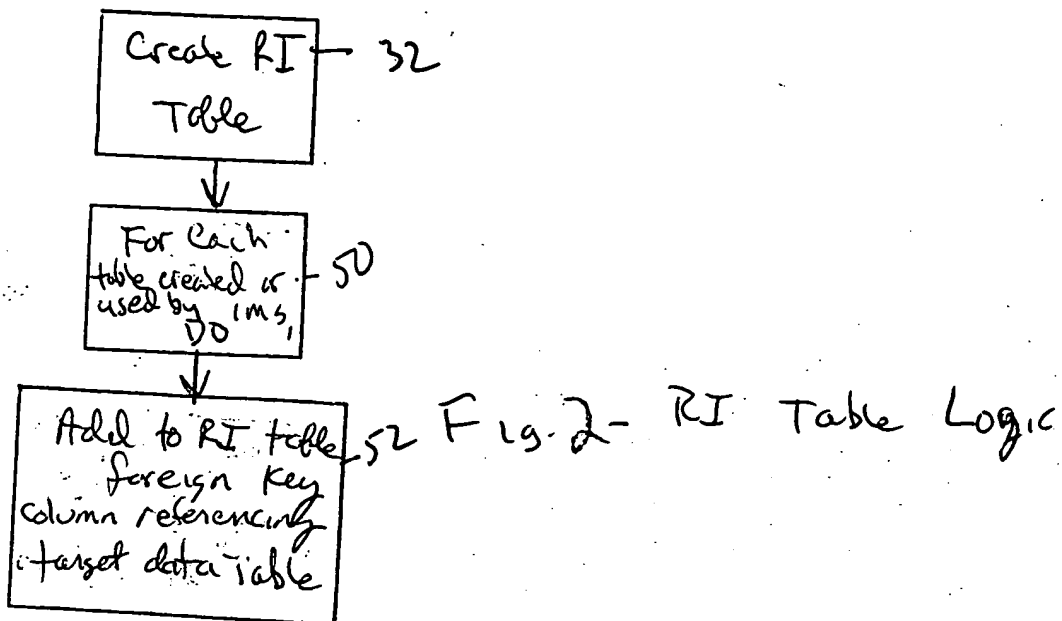 Create RI
Table
32
For Each
table created or
used by IMS,
DO
50
Add to RI table
foreign key
column referencing
target data Table
52
Fig. 2 - RI Table Logic